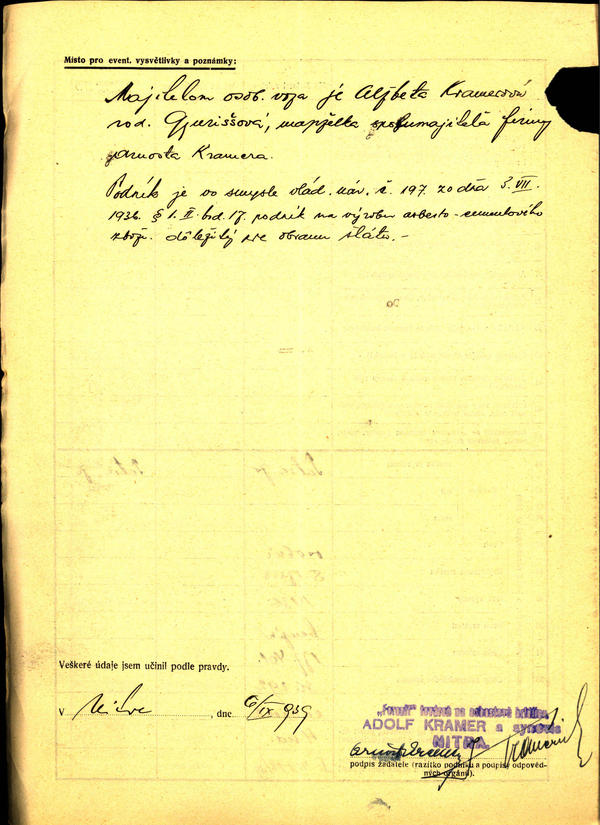 Místo pro event. vysvětlivky a poznámky:
Majitelom osob. voza je Alžbeta Kramerová
rod. Gjuriššová, manželka spolumajitela firmy
Arnošta Kramera.
Podnik je vo smysle vlád. nár. č. 197 zo dňa 3. VII.
1936 § 1. II. bod 17. podnik na výrobu asbesto-cementového
zboží. dôležitý pre obranu štátu.-
Veškeré údaje jsem učinil podle pravdy.
V Nitre, dne 6/IX 939
ADOLF KRAMER a
NITRA
podpis žadatele (razítko podniku a podpisy odpověd-
ných orgánů).